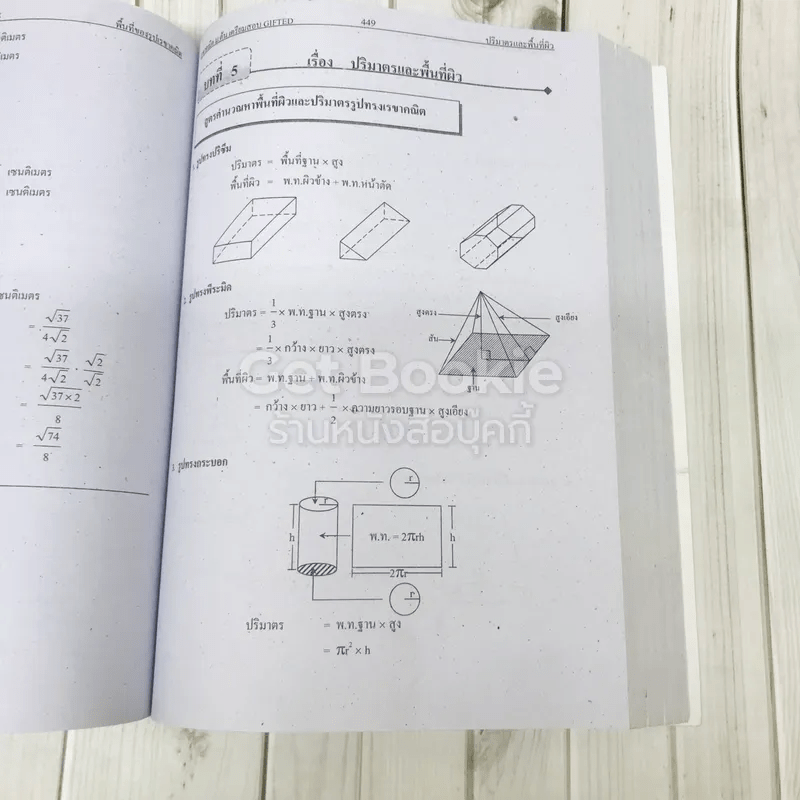 พื้นที่ของรูปเรขาคณิต
เซนติเมตร
เซนติเมตร
เซนติเมตร
= √37 / 4√2
= √37 / 4√2 · √2 / √2
= √37 × 2 / 8
= √74 / 8
เตรียมสอบ GIFTED 449 ปริมาตรและพื้นที่ผิว
บทที่ 5 เรื่อง ปริมาตรและพื้นที่ผิว
สูตรคำนวณหาพื้นที่ผิวและปริมาตรรูปทรงเรขาคณิต
รูปทรงปริซึม
ปริมาตร = พื้นที่ฐาน × สูง
พื้นที่ผิว = พ.ท.ผิวข้าง + พ.ท.หน้าตัด
2. รูปทรงพีระมิด
ปริมาตร = 1/3 × พ.ท.ฐาน × สูงตรง
= 1/3 × กว้าง × ยาว × สูงตรง
พื้นที่ผิว = พ.ท.ฐาน + พ.ท.ผิวข้าง
= กว้าง × ยาว + 1/2 × ความยาวรอบฐาน × สูงเอียง
สูงตรง
สูงเอียง
สัน
ฐาน
Get Bookie
ร้านหนังสือบุ๊คกี้
3. รูปทรงกระบอก
r
r
h
พ.ท. = 2πrh
h
2πr
r
ปริมาตร = พ.ท.ฐาน × สูง
= πr² × h